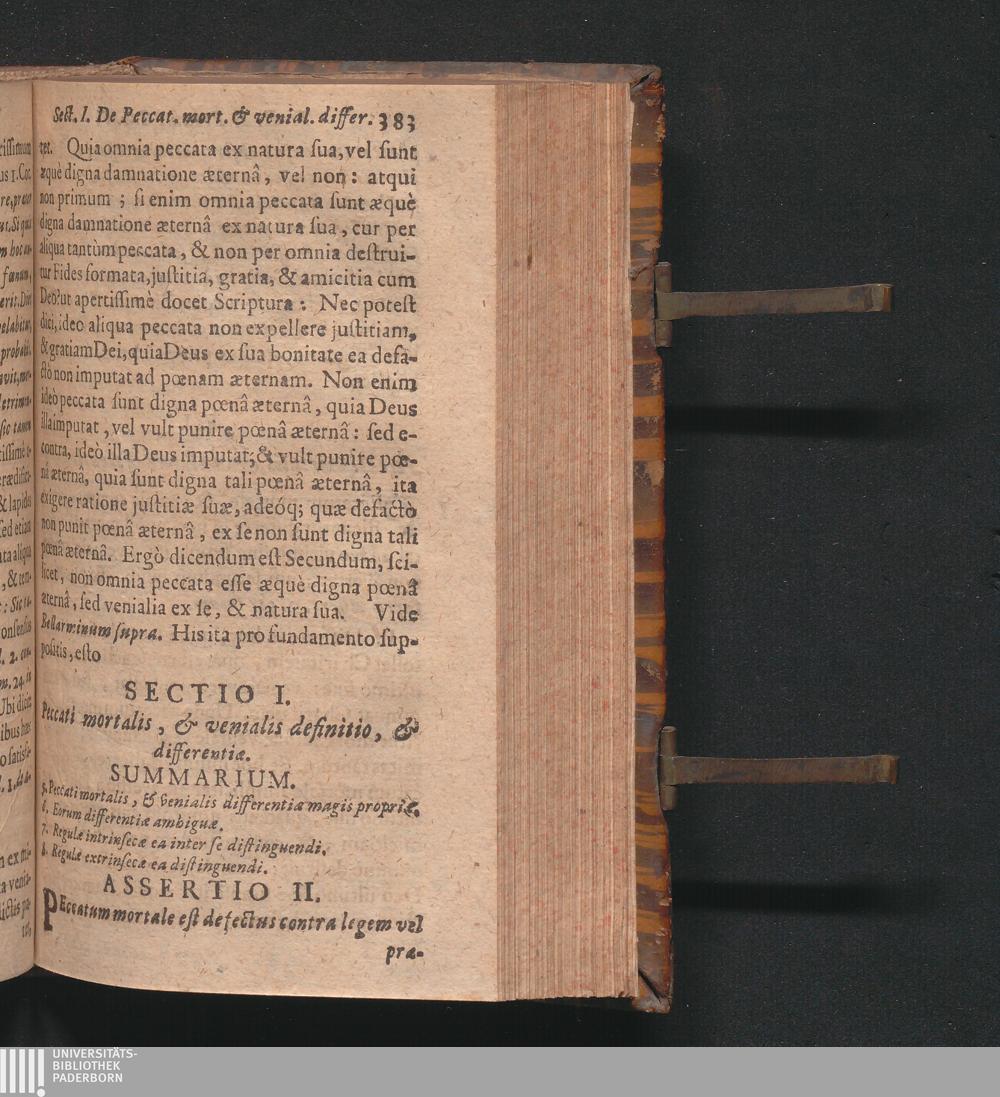 Sect. I. De Peccat. mort. & venial. differ. 383
tet. Quia omnia peccata ex natura ſua, vel ſunt
æquè digna damnatione æternâ, vel non: atqui
non primum; ſi enim omnia peccata ſunt æquè
digna damnatione æternâ ex natura ſua, cur per
aliqua tantùm peccata, & non per omnia deſtrui-
tur Fides formata, juſtitia, gratia, & amicitia cum
Deo? ut apertiſſimè docet Scriptura: Nec poteſt
dici, ideo aliqua peccata non expellere juſtitiam,
& gratiam Dei, quia Deus ex ſua bonitate ea defa-
ctò non imputat ad pœnam æternam. Non enim
ideò peccata ſunt digna pœnâ æternâ, quia Deus
illa imputat, vel vult punire pœnâ æternâ: ſed e-
contra, ideò illa Deus imputat; & vult punire pœ-
nâ æternâ, quia ſunt digna tali pœnâ æternâ, ita
exigere ratione juſtitiæ ſuæ, adeóq; quæ defactò
non punit pœnâ æternâ, ex ſe non ſunt digna tali
pœnâ æternâ. Ergò dicendum eſt Secundum, ſci-
licet, non omnia peccata eſſe æquè digna pœnâ
æternâ, ſed venialia ex ſe, & natura ſua. Vide
Bellarminum ſupra. His ita pro fundamento ſup-
poſitis, eſto
SECTIO I.
Peccati mortalis, & venialis definitio, &
differentiæ.
SUMMARIUM.
5. Peccati mortalis, & venialis differentiæ magis propriæ.
6. Eorum differentiæ ambiguæ.
7. Regulæ intrinſecæ ea inter ſe diſtinguendi.
8. Regulæ extrinſecæ ea diſtinguendi.
ASSERTIO II.
PEccatum mortale eſt defectus contra legem vel
præ-
UNIVERSITÄTS-
BIBLIOTHEK
PADERBORN